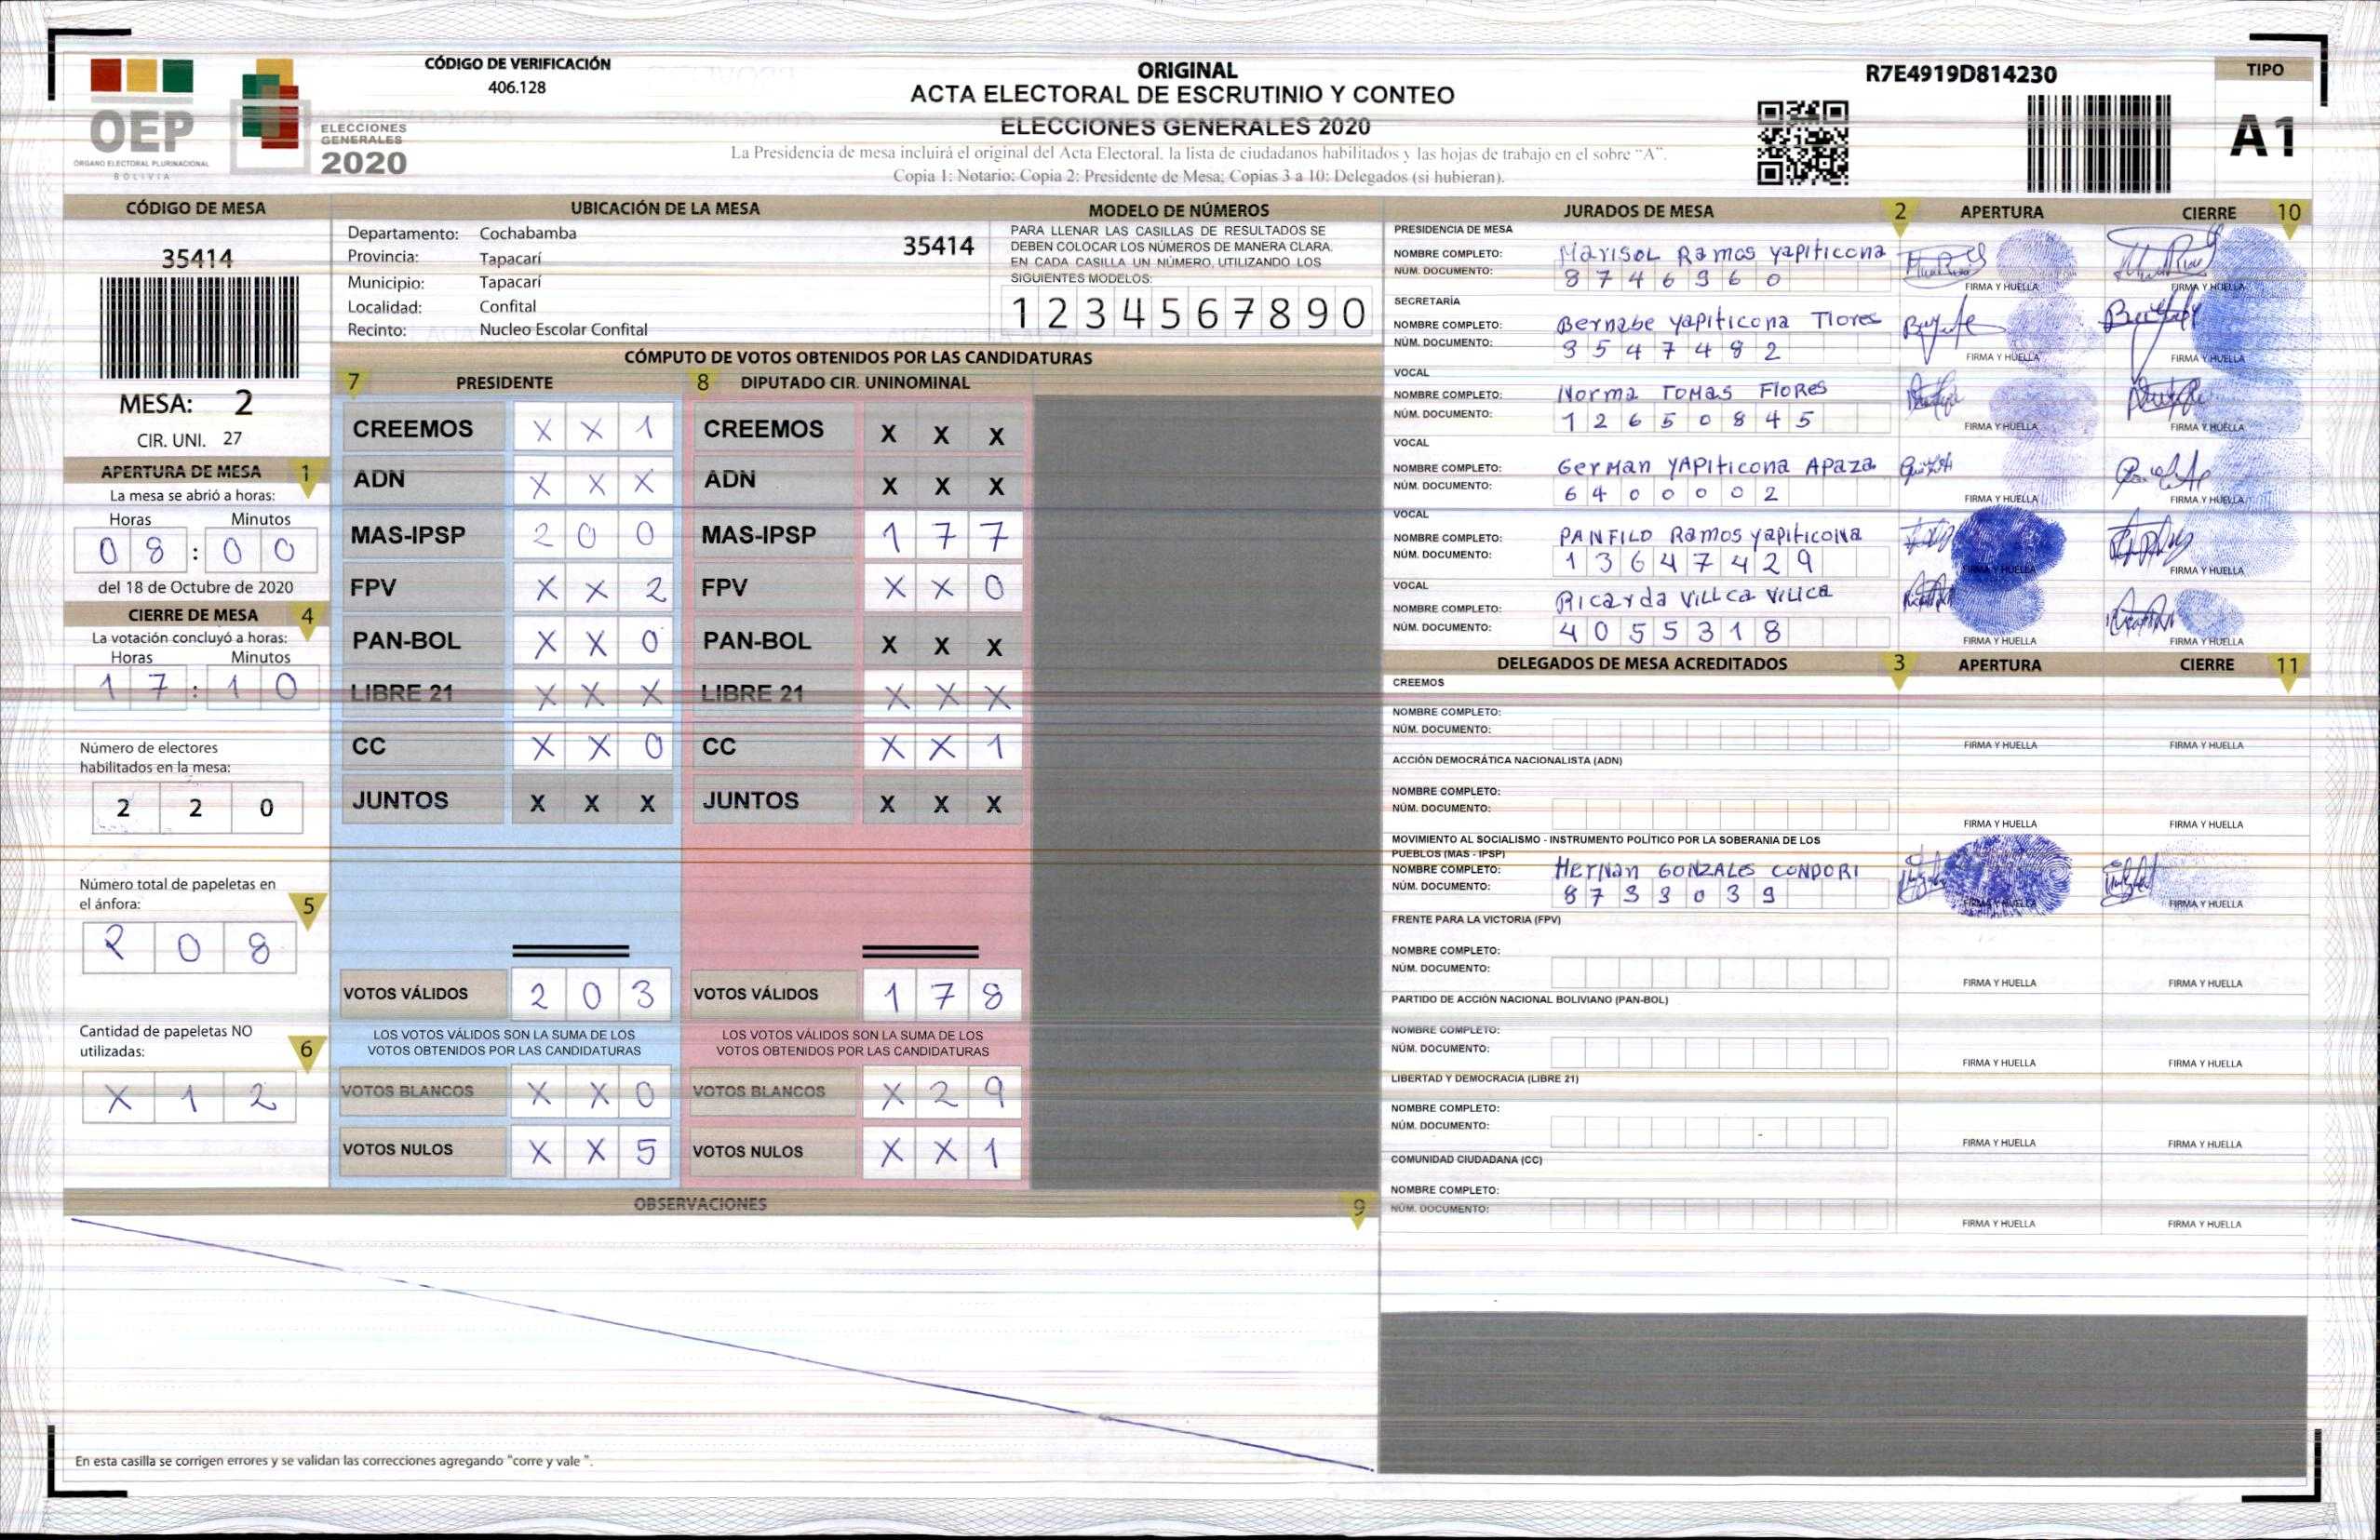 CÓDIGO DE VERIFICACIÓN
406.128
OEP
ÓRGANO ELECTORAL PLURINACIONAL
BOLIVIA
ELECCIONES
GENERALES
2020
ORIGINAL
ACTA ELECTORAL DE ESCRUTINIO Y CONTEO
ELECCIONES GENERALES 2020
La Presidencia de mesa incluirá el original del Acta Electoral, la lista de ciudadanos habilitados y las hojas de trabajo en el sobre "A".
Copia 1: Notario; Copia 2: Presidente de Mesa; Copias 3 a 10: Delegados (si hubieran).
R7E4919D814230
TIPO
A1
CÓDIGO DE MESA
35414
MESA: 2
CIR. UNI. 27
APERTURA DE MESA 1
La mesa se abrió a horas:
Horas Minutos
0 8 : 0 0
del 18 de Octubre de 2020
CIERRE DE MESA 4
La votación concluyó a horas:
Horas Minutos
1 7 : 1 0
Número de electores
habilitados en la mesa:
2 2 0
Número total de papeletas en
el ánfora: 5
2 0 8
Cantidad de papeletas NO
utilizadas: 6
X 1 2
UBICACIÓN DE LA MESA
Departamento: Cochabamba
Provincia: Tapacarí
Municipio: Tapacarí
Localidad: Confital
Recinto: Nucleo Escolar Confital
35414
MODELO DE NÚMEROS
PARA LLENAR LAS CASILLAS DE RESULTADOS SE
DEBEN COLOCAR LOS NÚMEROS DE MANERA CLARA,
EN CADA CASILLA UN NÚMERO, UTILIZANDO LOS
SIGUIENTES MODELOS:
1 2 3 4 5 6 7 8 9 0
CÓMPUTO DE VOTOS OBTENIDOS POR LAS CANDIDATURAS
7 PRESIDENTE 8 DIPUTADO CIR. UNINOMINAL
CREEMOS X X 1 CREEMOS X X X
ADN X X X ADN X X X
MAS-IPSP 2 0 0 MAS-IPSP 1 7 7
FPV X X 2 FPV X X 0
PAN-BOL X X 0 PAN-BOL X X X
LIBRE 21 X X X LIBRE 21 X X X
CC X X 0 CC X X 1
JUNTOS X X X JUNTOS X X X
VOTOS VÁLIDOS 2 0 3 VOTOS VÁLIDOS 1 7 8
LOS VOTOS VÁLIDOS SON LA SUMA DE LOS LOS VOTOS VÁLIDOS SON LA SUMA DE LOS
VOTOS OBTENIDOS POR LAS CANDIDATURAS VOTOS OBTENIDOS POR LAS CANDIDATURAS
VOTOS BLANCOS X X 0 VOTOS BLANCOS X 2 9
VOTOS NULOS X X 5 VOTOS NULOS X X 1
OBSERVACIONES 9
En esta casilla se corrigen errores y se validan las correcciones agregando "corre y vale ".
JURADOS DE MESA 2 APERTURA CIERRE 10
PRESIDENCIA DE MESA
NOMBRE COMPLETO: Marisol Ramos yapiticona
NÚM. DOCUMENTO: 8 7 4 6 9 6 0
FIRMA Y HUELLA FIRMA Y HUELLA
SECRETARÍA
NOMBRE COMPLETO: Bernabe yapiticona Flores
NÚM. DOCUMENTO: 9 5 4 7 4 8 2
FIRMA Y HUELLA FIRMA Y HUELLA
VOCAL
NOMBRE COMPLETO: Norma TOMAS FLORES
NÚM. DOCUMENTO: 1 2 6 5 0 8 4 5
FIRMA Y HUELLA FIRMA Y HUELLA
VOCAL
NOMBRE COMPLETO: GerMan YAPIticona APaza
NÚM. DOCUMENTO: 6 4 0 0 0 0 2
FIRMA Y HUELLA FIRMA Y HUELLA
VOCAL
NOMBRE COMPLETO: PANFILO Ramos yapiticona
NÚM. DOCUMENTO: 1 3 6 4 7 4 2 9
FIRMA Y HUELLA FIRMA Y HUELLA
VOCAL
NOMBRE COMPLETO: Ricarda Villca Villca
NÚM. DOCUMENTO: 4 0 5 5 3 1 8
FIRMA Y HUELLA FIRMA Y HUELLA
DELEGADOS DE MESA ACREDITADOS 3 APERTURA CIERRE 11
CREEMOS
NOMBRE COMPLETO:
NÚM. DOCUMENTO:
FIRMA Y HUELLA FIRMA Y HUELLA
ACCIÓN DEMOCRÁTICA NACIONALISTA (ADN)
NOMBRE COMPLETO:
NÚM. DOCUMENTO:
FIRMA Y HUELLA FIRMA Y HUELLA
MOVIMIENTO AL SOCIALISMO - INSTRUMENTO POLÍTICO POR LA SOBERANIA DE LOS
PUEBLOS (MAS - IPSP)
NOMBRE COMPLETO: HerNan GONZALES CONDORI
NÚM. DOCUMENTO: 8 7 3 3 0 3 9
FIRMA Y HUELLA FIRMA Y HUELLA
FRENTE PARA LA VICTORIA (FPV)
NOMBRE COMPLETO:
NÚM. DOCUMENTO:
FIRMA Y HUELLA FIRMA Y HUELLA
PARTIDO DE ACCIÓN NACIONAL BOLIVIANO (PAN-BOL)
NOMBRE COMPLETO:
NÚM. DOCUMENTO:
FIRMA Y HUELLA FIRMA Y HUELLA
LIBERTAD Y DEMOCRACIA (LIBRE 21)
NOMBRE COMPLETO:
NÚM. DOCUMENTO:
FIRMA Y HUELLA FIRMA Y HUELLA
COMUNIDAD CIUDADANA (CC)
NOMBRE COMPLETO:
NÚM. DOCUMENTO:
FIRMA Y HUELLA FIRMA Y HUELLA